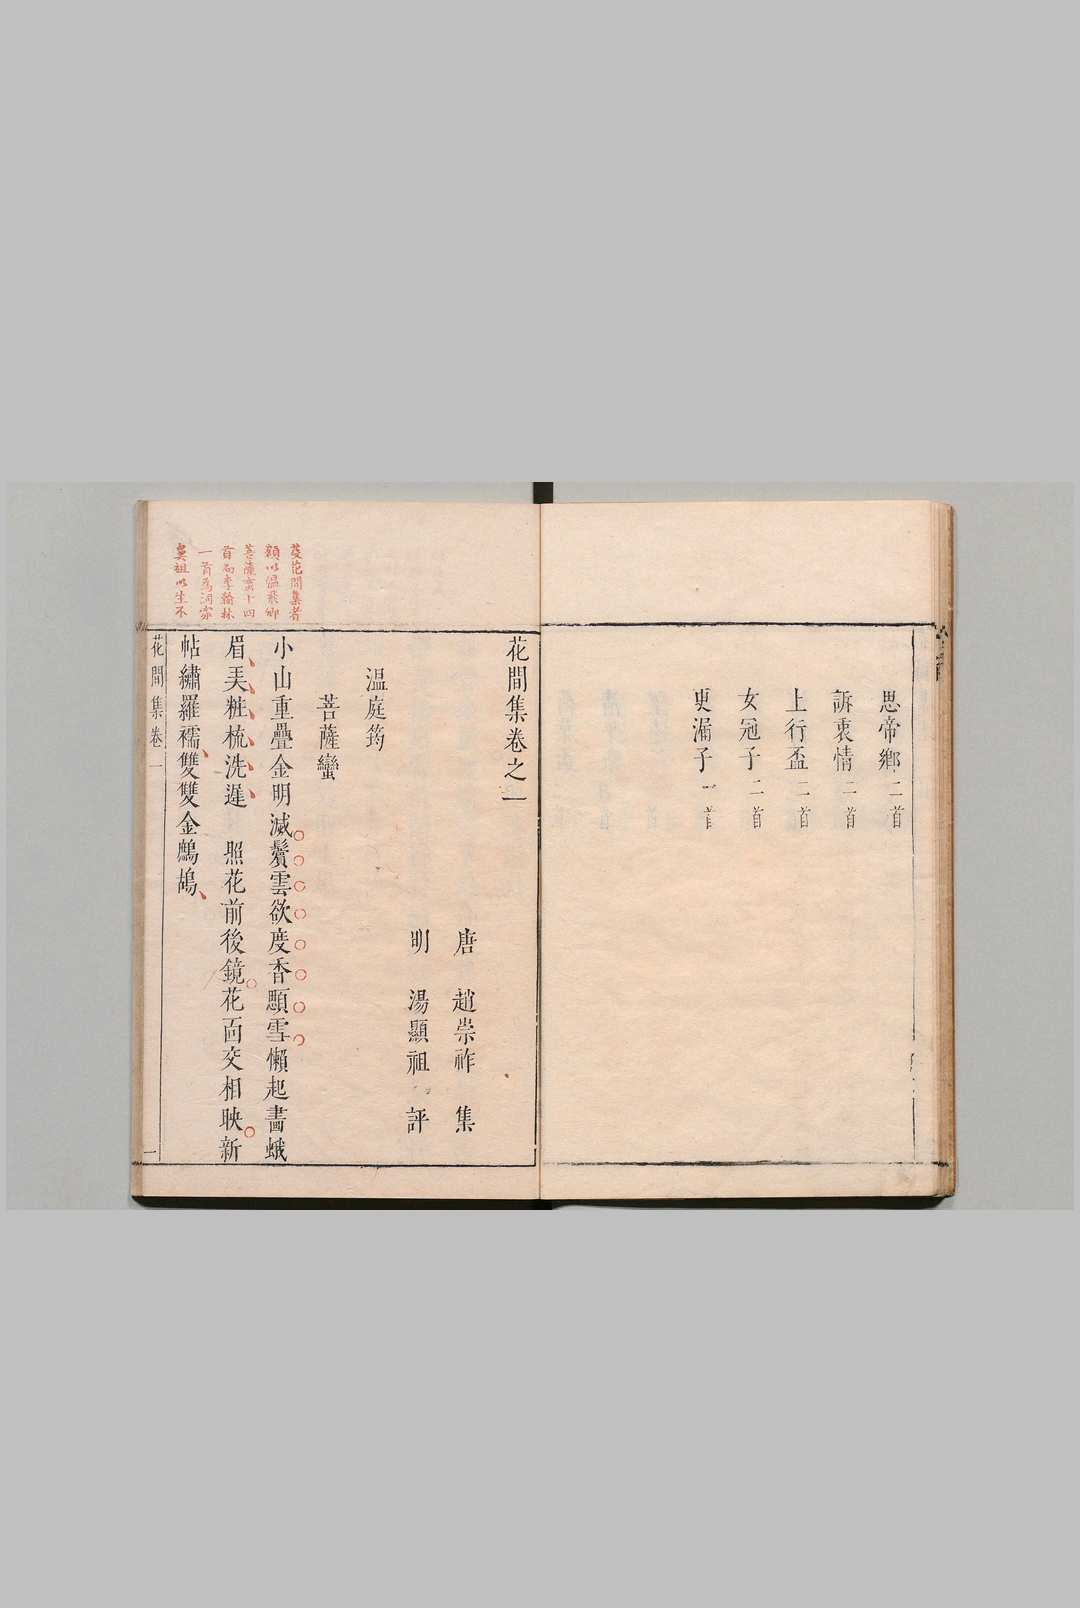 思帝鄉二首
訴衷情二首
上行盃二首
女冠子二首
更漏子一首
花間集卷之一
唐 趙崇祚 集
明 湯顯祖 評
温庭筠
菩薩蠻
小山重疊金明滅鬢雲欲度香顋雪懶起畫蛾
眉弄粧梳洗遲 照花前後鏡花面交相映新
帖繡羅襦雙雙金鷓鴣
芟花間集者
額以温飛卿
菩薩蠻十四
首而李翰林
一首為詞家
鼻祖以生不
花間集卷一
一